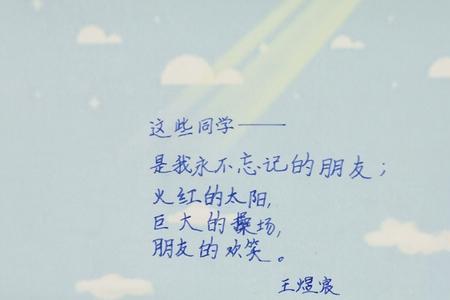 这些同学——
是我永不忘记的朋友；
火红的太阳，
巨大的操场，
朋友的欢笑。
王煜宸